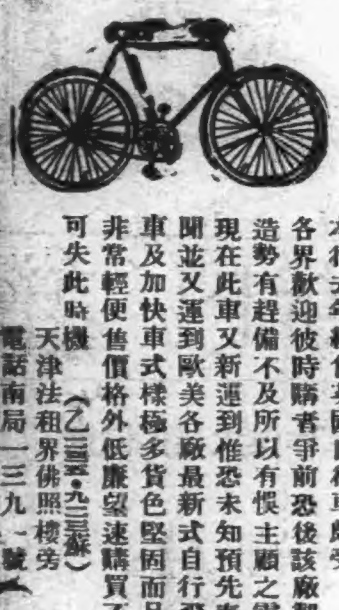 各界歡迎彼時購者爭前恐後該廠
造勢有趕備不及所以有悞主顧之
現在此車又新運到惟恐未知預先
聞並又運到歐美各廠最新式自行
車及加快車式樣極多貨色堅固而且
非常輕便售價格外低廉望速購買不
可失此時機
天津法租界佛照樓旁
電話南局一三九一號